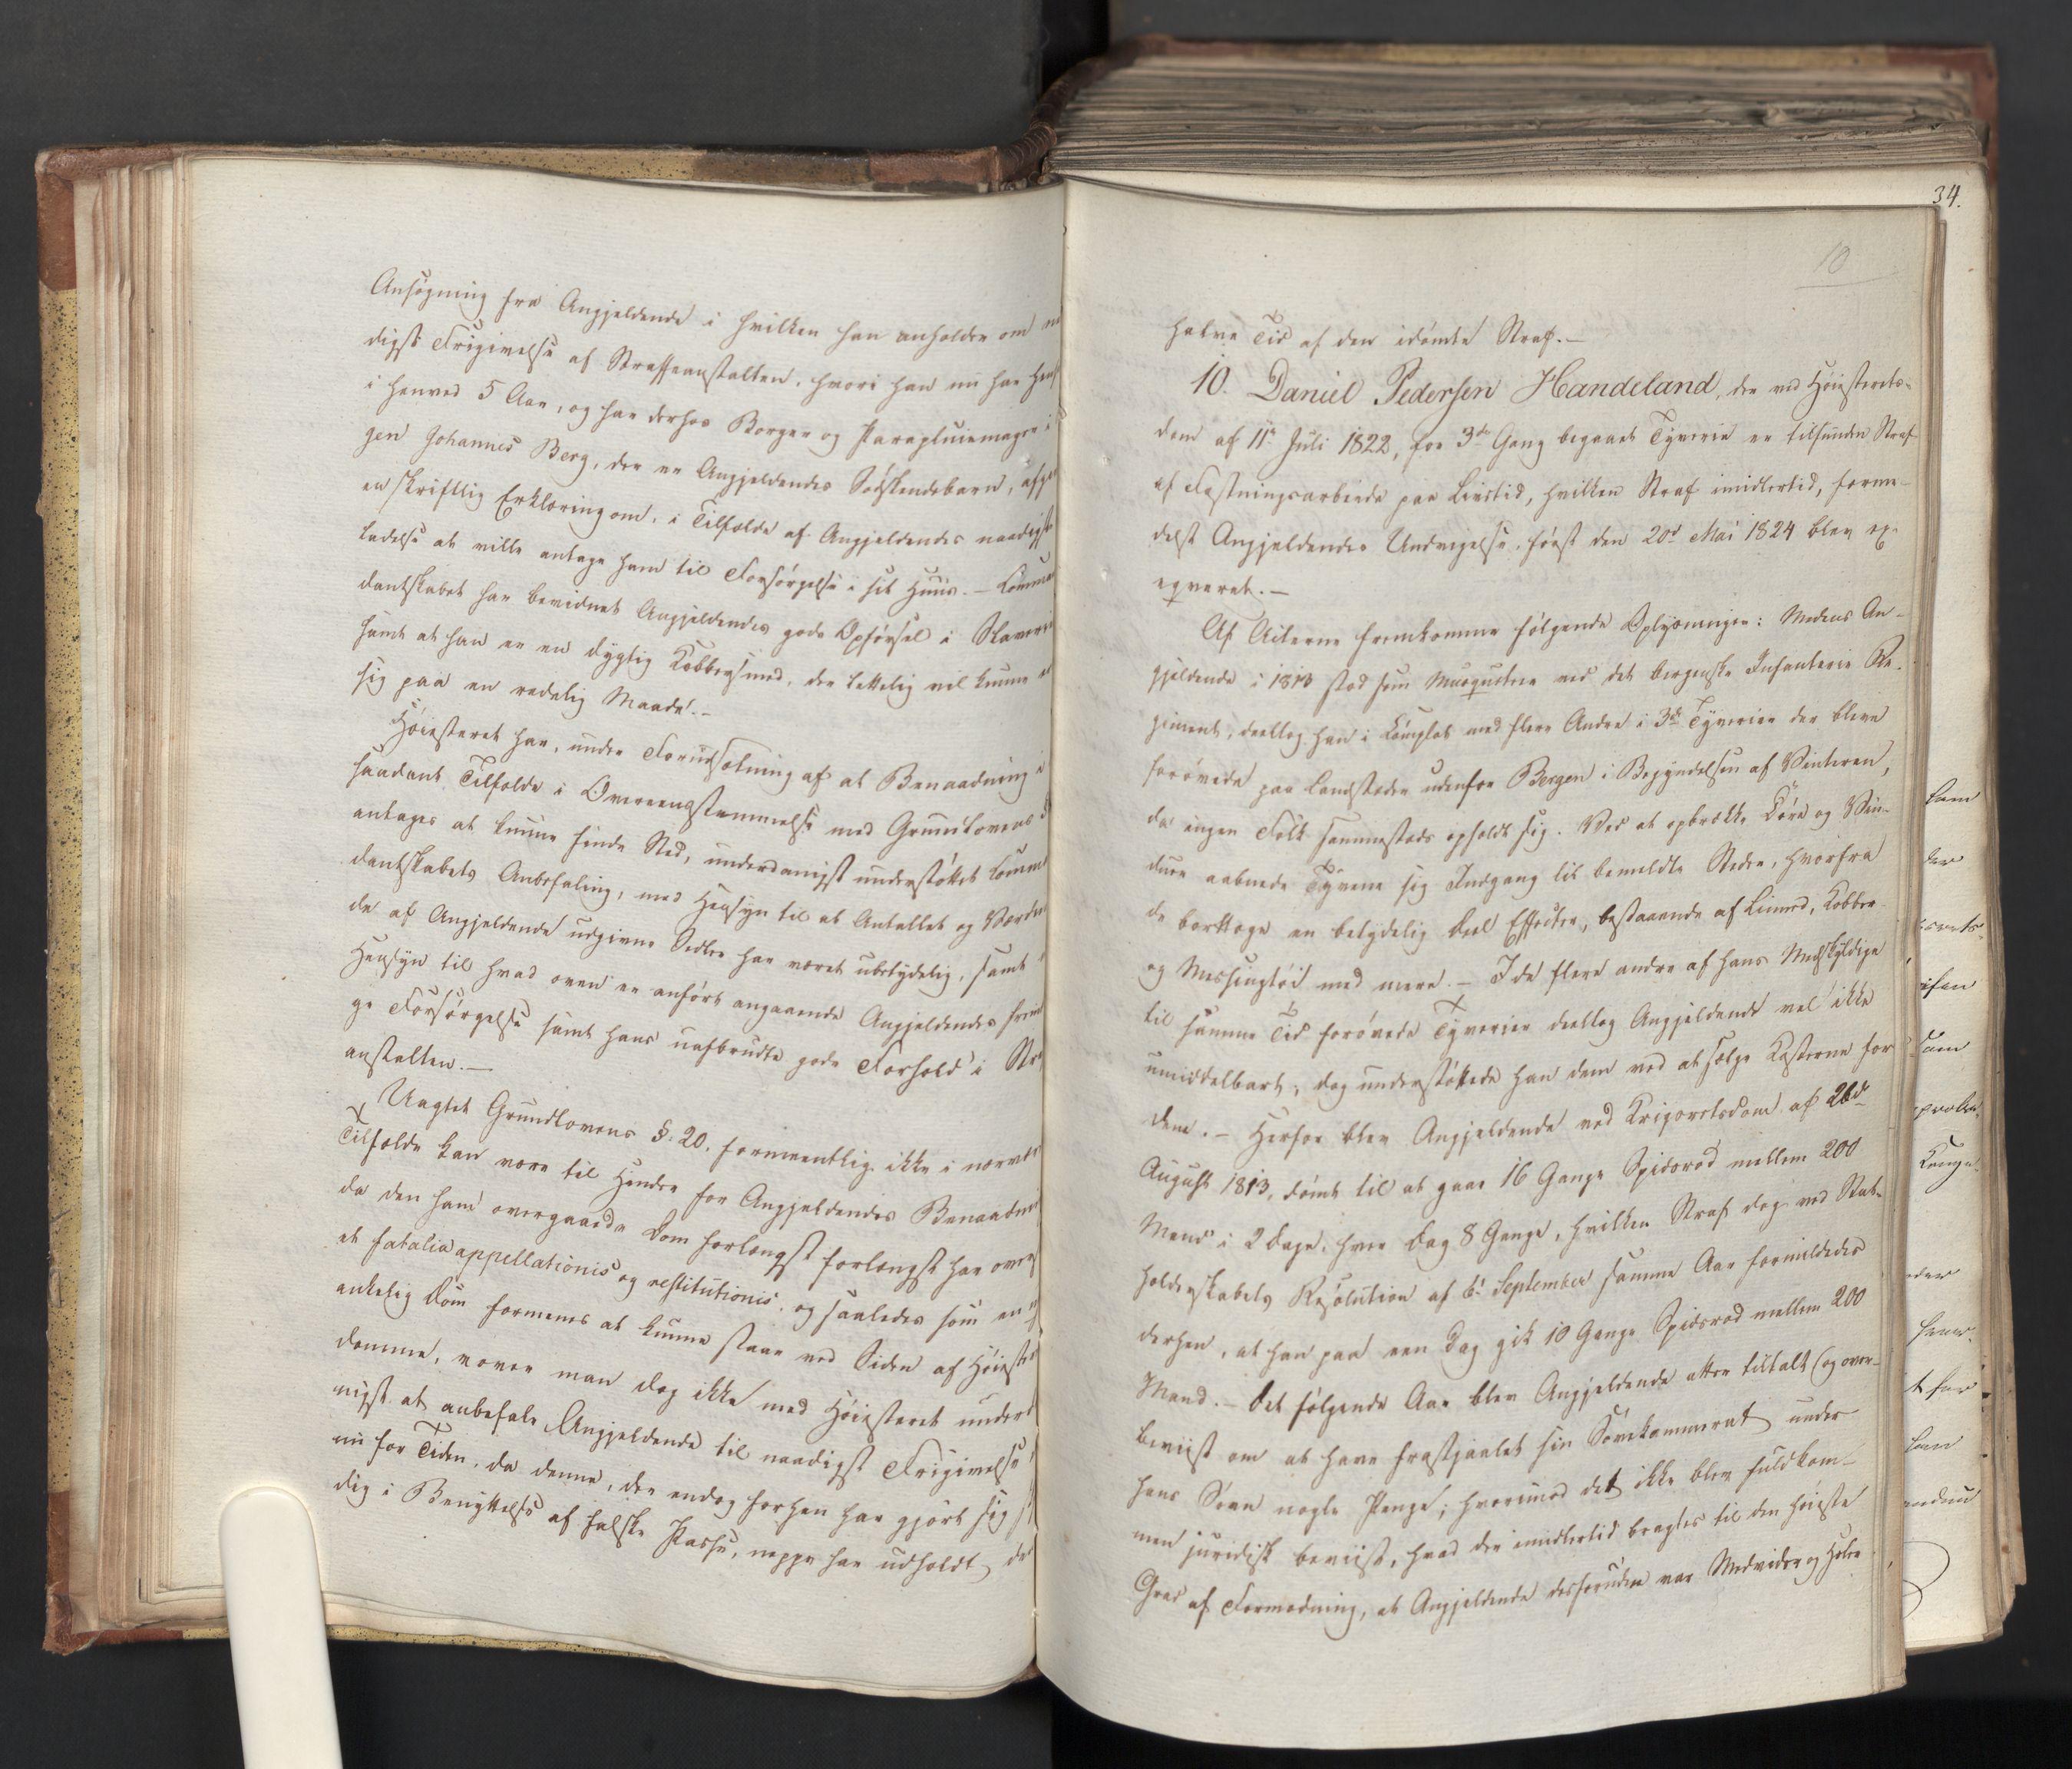 Ansøgning fra Angjeldende i hvilken han anholder om
digst Frigivelse af Straffeanstalten, hvori han nu har
i henved 5 Aar, og har derhos Borger og Parapluiemager i
gen Johannes Berg, der er Angjeldendes Sødskendebarn,
en skriftlig Erklæring om, i Tilfælde af Angjeldendes naadigste
ladelse at ville antage ham til Forsørgelse i sit Huus. –
dantskabet har bevidnet Angjeldendes gode Opførsel i Slaveriet
samt at han er en dygtig Kobbersmed, der lettelig vil kunne
sig paa en redelig Maade. –
Høiesteret har, under Forudsætning af at Benaadning i
saadant Tilfælde i Overeensstemmelse med Grundlovens §
antages at kunne finde Sted, underdanigst understøttet
dantskabets Anbefaling, med Hensyn til at Antallet og Værdien
de af Angjeldende udgivne Sedler har været ubetydelig, samt
Hensyn til hvad oven er anført angaaende Angjeldendes
ge Forsørgelse samt hans uafbrudte gode Forhold i
anstalten. –
Uagtet Grundlovens §. 20. formeentlig ikke i nærvæ
Tilfælde kan være til Hinder for Angjeldendes Benaadning
da den ham overgaaede Dom forlængst forlængst har
et fatalia appellationis og restitutionis, og saaledes som en
ankelig Dom formenes at kunne staae ved Siden af Høieste
domme, vover man dog ikke med Høiesteret under
nigst at anbefale Angjeldende til naadigst Frigivelse
nu for Tiden, da denne, der endog forhen har gjort sig
dig i Benyttelse af falske Passe, neppe har udholdt
34.
10
halve Tid af den idømte Straf. –
10. Daniel Pedersen Handeland, der ved Høiesterets-
dom af 11te Juli 1822, for 3die Gang begaaet Tyverie er tilfunden Straf
af Fæstningsarbeide paa Livstid, hvilken Straf imidlertid, forme-
delst Angjeldendes Undvigelse, først den 20de Mai 1824 blev ex-
eqveret. –
Af Acterne fremkomme følgende Oplysninger: Medens An-
gjeldende i 1813 stod som Musqueteer ved det bergenske Infanterie Re-
giment, deeltog han i Complot med flere Andre i 3de Tyverier der bleve
forøvede paa Landsteder udenfor Bergen i Begyndelsen af Vinteren,
da ingen Folk sammesteds opholdt sig. Ved at opbrække Døre og Vin-
duer aabnede Tyvene sig Indgang til bemeldte Steder, hvorfra
de borttoge en betydelig Deel Effecter, bestaaende af Linned, Kobber-
og Messingtøi med mere. – I de flere andre af hans Medskyldige
til samme Tid forøvede Tyverier deeltog Angjeldende vel ikke
umiddelbart, dog understøttede han dem ved at sælge Kosterne for
dem. – Herfor blev Angjeldende ved Krigsretsdom af 26de
August 1813, dømt til at gaae 16 Gange Spidsrod mellem 200
Mand i 2 Dage, hver Dag 8 Gange, hvilken Straf dog ved Stat-
holderskabets Resolution af 6te September samme Aar formildedes
derhen, at han paa een Dag gik 10 Gange Spidsrod mellem 200
Mand. – Det følgende Aar blev Angjeldende atter tiltalt (og over-
beviist om at have frastjaalet sin Sovekammerat under
hans Søvn nogle Penge; hvorimod det ikke blev fuldkom-
men juridisk beviist, hvad der imidlertid bragtes til den høieste
Grad af Formodning, at Angjeldende desforuden var Medvider og Hæler